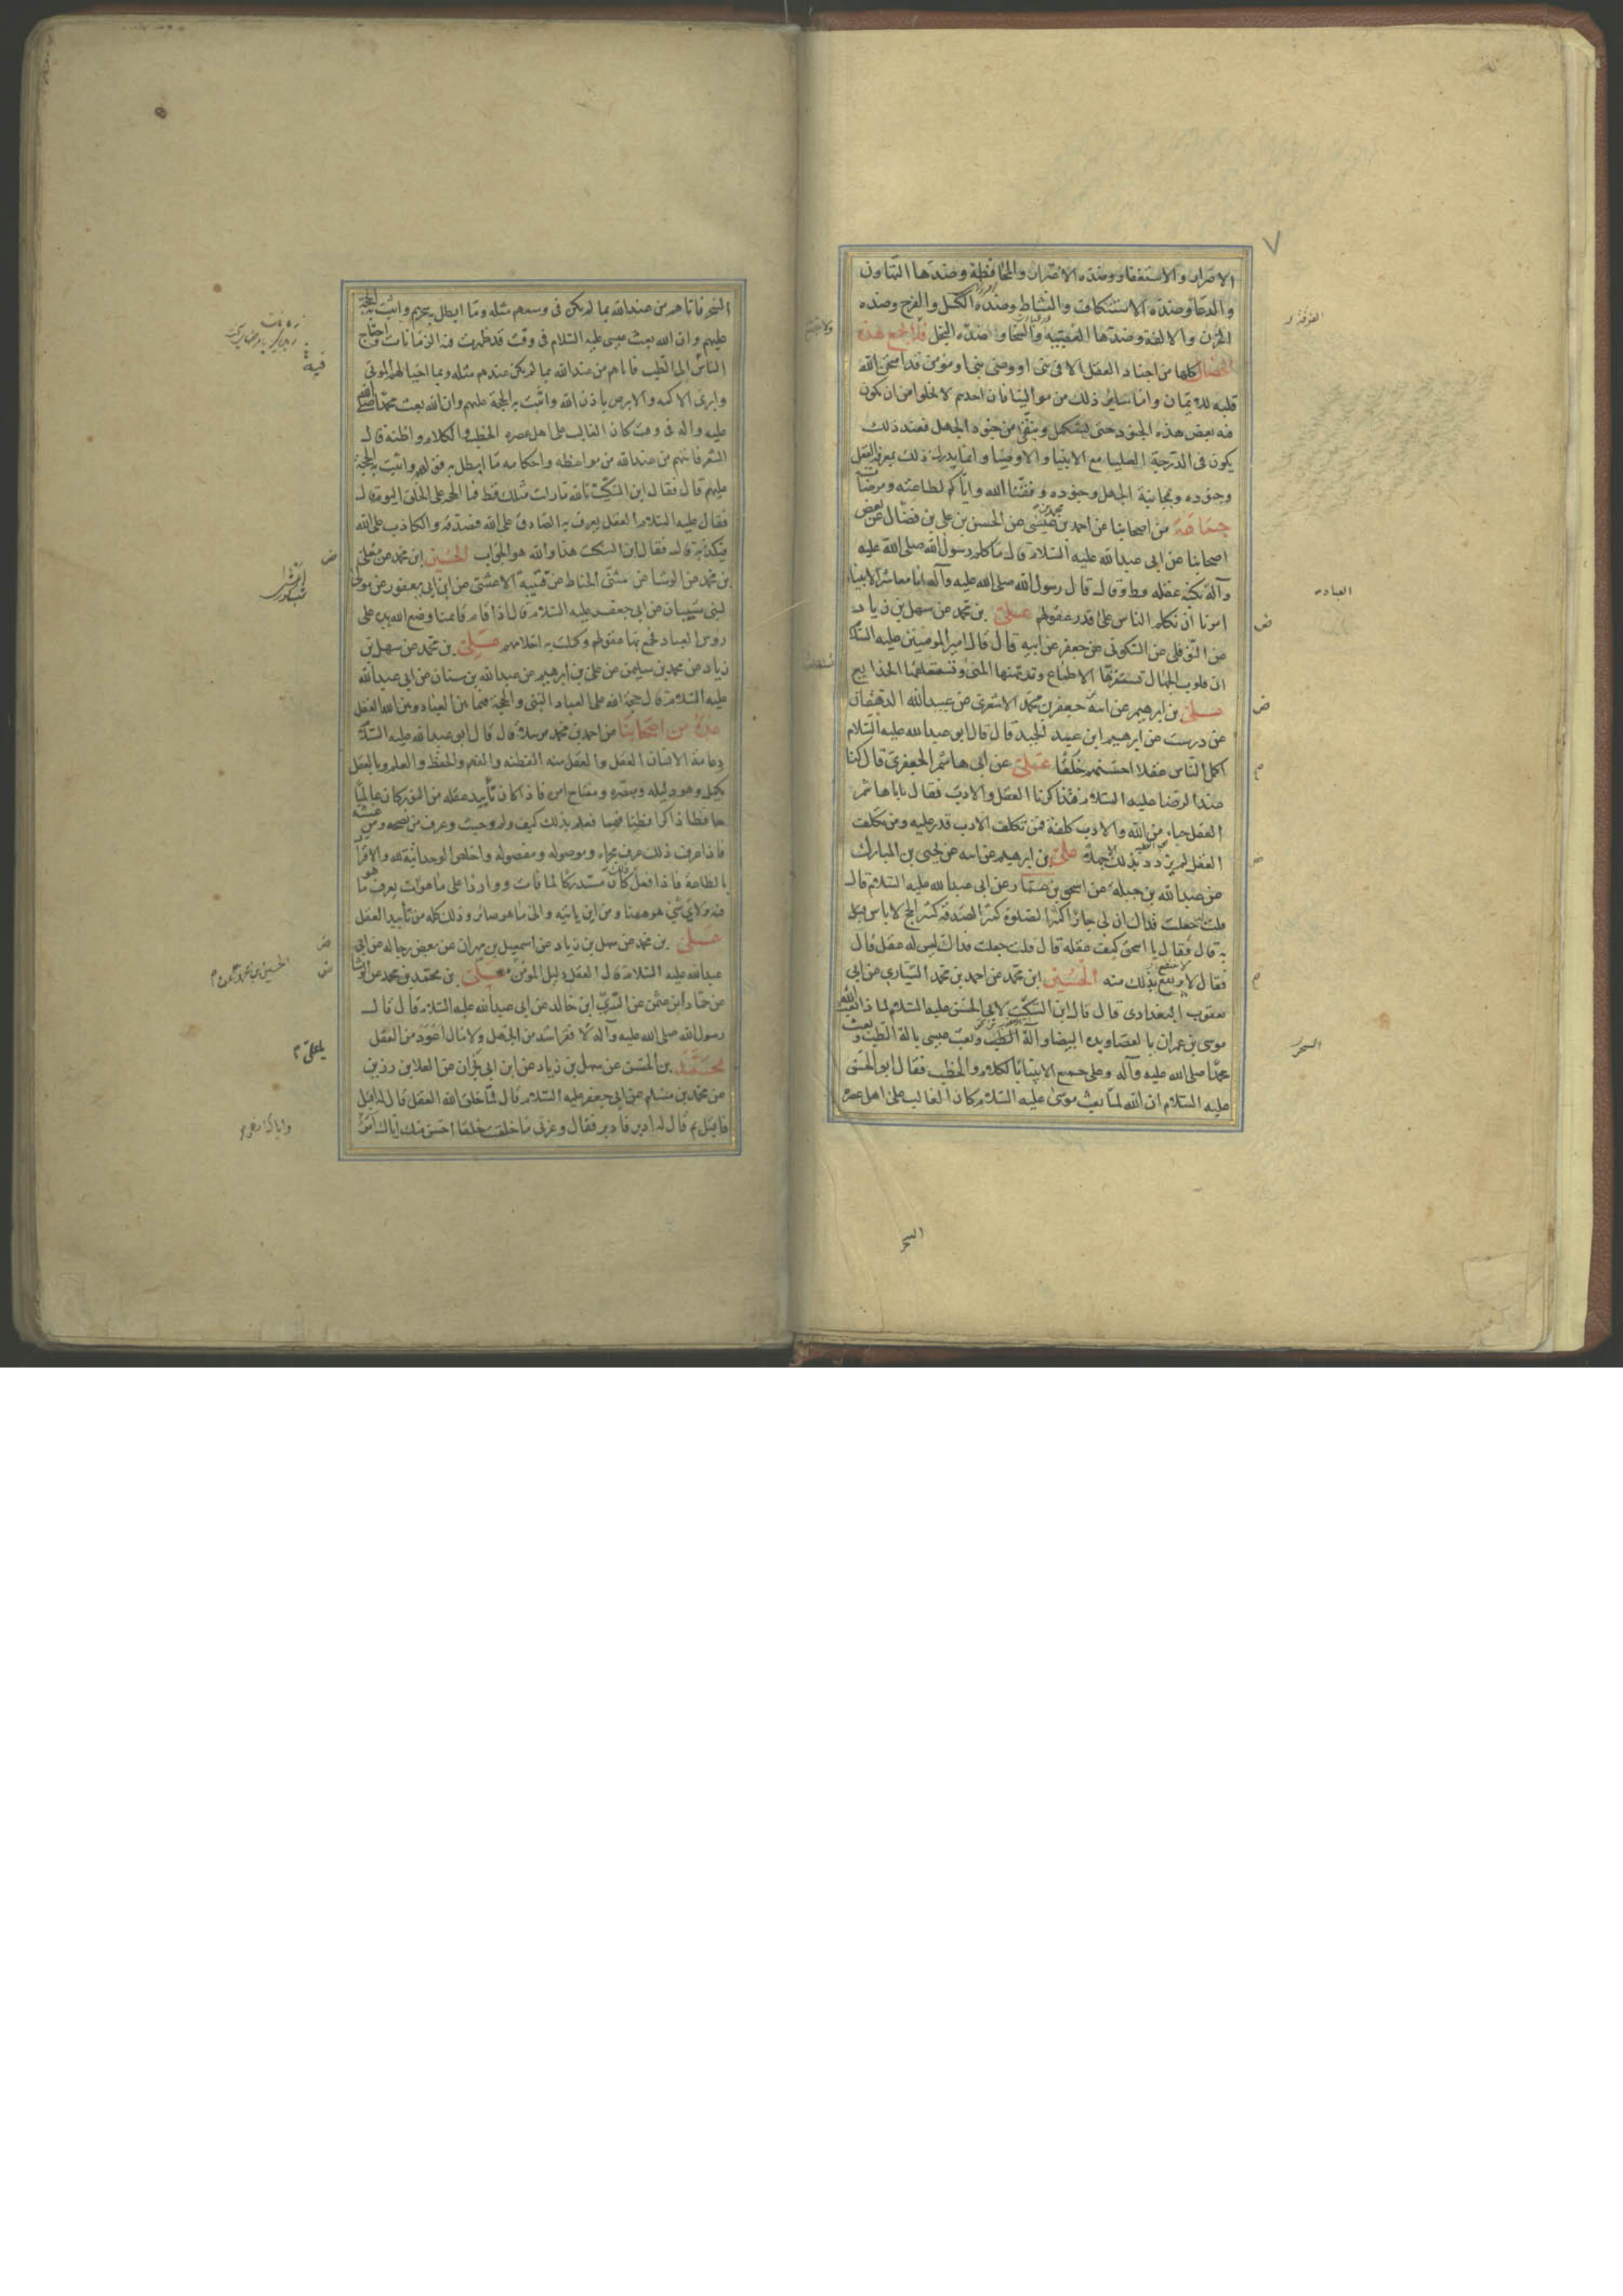 الاصرار والاستغفار وضده الاصرار والمحافظة وضدها التهاون
والدعاء وضده الاستنكاف والنشاط وضده الكسل والفرح وضده
الحزن والالفة وضدها العصبية والسخا وضده البخل فلا تجمع هذه
الخصال كلها من اجناد العقل الا فى نبى او وصى نبى او مؤمن قد امتحن الله
قلبه للايمان واما سائر ذلك من موالينا فان احدهم لا يخلوا من ان يكون
فيه بعض هذه الجنود حتى يستكمل وينقى من جنود الجهل فعند ذلك
يكون فى الدرجة العليا مع الانبيا والاوصيا وانما يدرك ذلك بمعرفة العقل
وجنوده ومجانبة الجهل وجنوده وفقنا الله واياكم لطاعته ومرضاته
جماعة من اصحابنا عن احمد بن محمد بن عيسى عن الحسن بن على بن فضال عن بعض
اصحابنا عن ابى عبد الله عليه السلام قال ما كلم رسول الله صلى الله عليه
وآله بكنه عقله قط وقال قال رسول الله صلى الله عليه وآله انا معاشر الانبيا
امرنا ان نكلم الناس على قدر عقولهم على بن محمد عن سهل بن زياد
عن النوفلى عن السكونى عن جعفر عن ابيه قال قال امير المومنين عليه السلام
ان قلوب الجهال تستفزها الاطماع وترتهنها المنى وتستعلقها الخدايع
على بن ابرهيم عن ابيه عن جعفر بن محمد الاشعرى عن عبيد الله الدهقان
عن درست عن ابرهيم ابن عبد الحميد قال قال ابو عبد الله عليه السلام
اكمل الناس عقلا احسنهم خلقا على عن ابى هاشم الجعفرى قال كنا
عند الرضا عليه السلام فتذاكرنا العقل والادب فقال يابا هاشم
العقل حباء من الله والادب كلفة فمن تكلف الادب قدر عليه ومن تكلف
العقل لم يزدد بذلك الا جهلا على بن ابرهيم عن ابيه عن يحيى بن المبارك
عن عبد الله بن جبلة عن اسحق بن عمار عن ابى عبد الله عليه السلام قال
قلت جعلت فداك ان لى جارا كثير الصلوة كثير الصدقة كثير الحج لا باس
به قال فقال يا اسحق كيف عقله قال قلت جعلت فداك ليس له عقل قال
فقال لا يرتفع بذلك منه الحسين ابن محمد عن احمد بن محمد السيارى عن ابى
يعقوب البغدادى قال قال ابن السكيت لابى الحسن عليه السلام لما ذا بعث الله
موسى بن عمران بالعصا ويده البيضا وآلة السحر وبعث عيسى بالة الطب وبعث
محمدا صلى الله عليه وآله وعلى جميع الانبيا بالكلام والخطب فقال ابو الحسن
عليه السلام ان الله لما بعث موسى عليه السلام كان الغالب على اهل عصره
العبادة
السحر
السحر
السحر فاتاهم من عند الله بما لم يكن فى وسعهم مثله وما ابطل به سحرهم واثبت به الحجة
عليهم وان الله بعث عيسى عليه السلام فى وقت قد ظهرت فيه الزمانات واحتاج
الناس الى الطب فاتاهم من عند الله بما لم يكن عندهم مثله وبما احيا لهم الموتى
وابرئ الاكمه والابرص باذن الله واثبت به الحجة عليهم وان الله بعث محمدا صلى الله
عليه وآله فى وقت كان الغالب على اهل عصره الخطب والكلام واظنه قال
الشعر فاتيهم من عند الله من مواعظه واحكامه ما ابطل به قولهم واثبت به الحجة
عليهم قال فقال ابن السكيت تالله ما رايت مثلك قط فما الحجة على الخلق اليوم قال
فقال عليه السلام العقل يعرف به الصادق على الله فيصدقه والكاذب على الله
فيكذبه قال فقال ابن السكيت هذا والله هو الجواب الحسين ابن محمد عن معلى
بن محمد عن الوشا عن مثنى الحناط عن قتيبة الاعشى عن ابن ابى يعفور عن مولى
لبنى شيبان عن ابى جعفر عليه السلام قال اذا قام قائمنا وضع الله يده على
رؤس العباد فجمع بها عقولهم وكملت به احلامهم على بن محمد عن سهل بن
زياد عن محمد بن سليمن عن على بن ابرهيم عن عبد الله بن سنان عن ابى عبد الله
عليه السلام قال حجة الله على العباد النبى والحجة فيما بين العباد وبين الله العقل
عدة من اصحابنا عن احمد بن محمد مرسلا قال قال ابو عبد الله عليه السلام
دعامة الانسان العقل والعقل منه الفطنة والفهم والحفظ والعلم وبالعقل
يكمل وهو دليله ومبصره ومفتاح امره فاذا كان تأييد عقله من النور كان عالما
حافظا ذاكرا فطنا فهما فعلم بذلك كيف ولم وحيث وعرف من نصحه ومن غشه
فاذا عرف ذلك عرف مجراه وموصوله ومفصوله واخلص الوحدانية لله والاقرار
بالطاعة فاذا فعل ذلك كان مستدركا لما فات وواردا على ما هو آت يعرف ما هو
فيه ولاى شئ هو ههنا ومن اين ياتيه والى ما هو صائر وذلك كله من تأييد العقل
على بن محمد عن سهل بن زياد عن اسمعيل بن مهران عن بعض رجاله عن ابى
عبد الله عليه السلام قال العقل دليل المومن على بن محمد عن الوشا
عن حماد ابن عثمن عن السرى ابن خالد عن ابى عبد الله عليه السلام قال قال
رسول الله صلى الله عليه وآله لا فقر اشد من الجهل ولا مال اعود من العقل
محمد بن الحسن عن سهل بن زياد عن ابن ابى نجران عن العلا بن رزين
عن محمد بن مسلم عن ابى جعفر عليه السلام قال لما خلق الله العقل قال له اقبل
فاقبل ثم قال له ادبر فادبر فقال وعزتى ما خلقت خلقا احسن منك اياك آمر